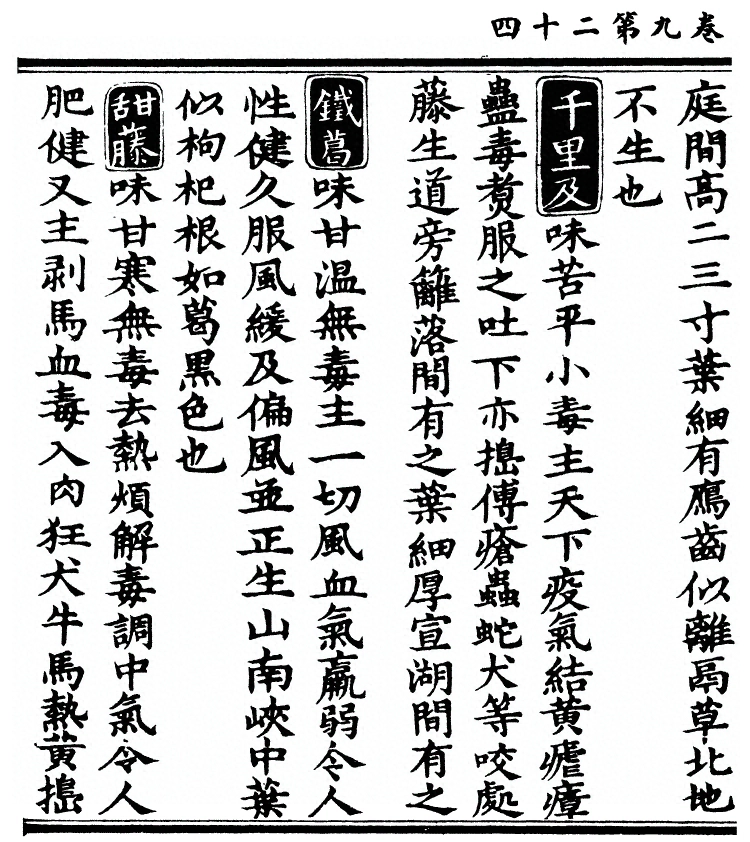 卷九第二十四
庭間高二三寸葉細有鴈齒似離鬲草北地
不生也
千里及味苦平小毒主天下疫氣結黃瘧瘴
蠱毒煑服之吐下亦搗傅瘡蟲蛇犬等咬處
藤生道旁籬落間有之葉細厚宣湖間有之
鐵葛味甘溫無毒主一切風血氣羸弱令人
性健久服風緩及偏風並正生山南峽中葉
似枸杞根如葛黑色也
甜藤味甘寒無毒去熱煩解毒調中氣令人
肥健又主剥馬血毒入肉狂犬牛馬熱黃搗